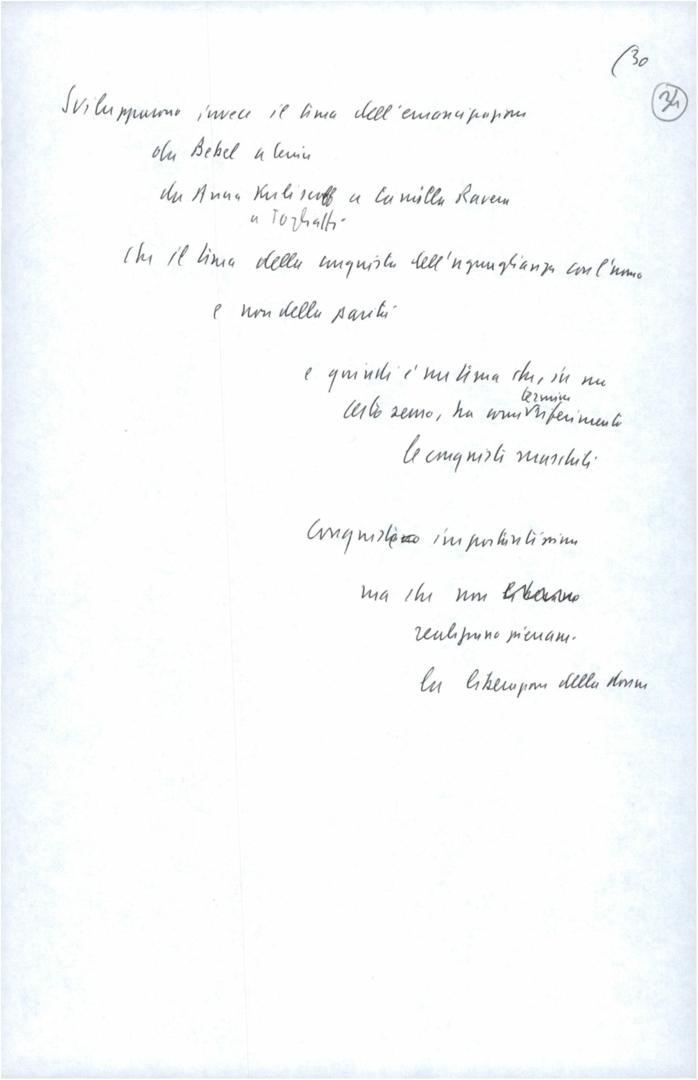 (30
34
Svilupparono invece il tema dell'emancipazione
da Bebel a Lenin
da Anna Kuliscioff a Camilla Ravera
a Togliatti
che il tema della conquista dell'uguaglianza con l'uomo
e non della parità
e quindi è un tema che, in un
termine
certo senso, ha come riferimento
le conquiste maschili
Conquiste importantissime
ma che non
realizzano pienam.
la liberazione della donna